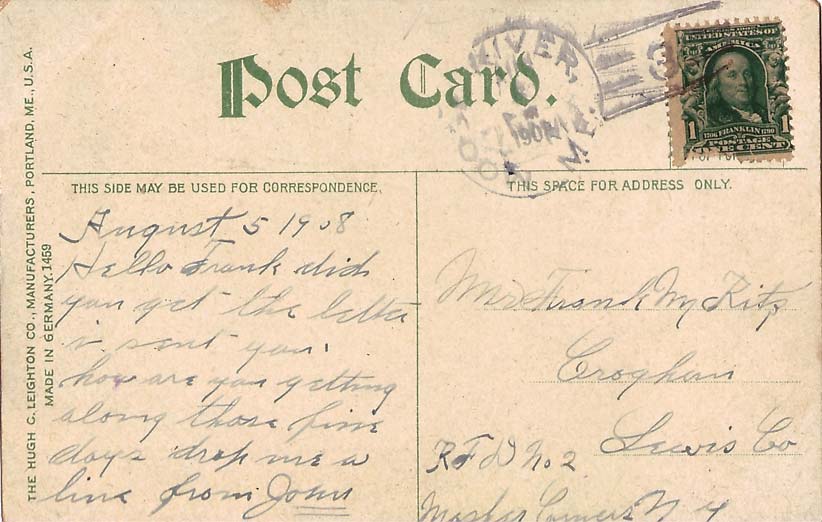 Post Card.
THE HUGH C. LEIGHTON CO., MANUFACTURERS, PORTLAND, ME., U.S.A.
MADE IN GERMANY. 1459
THIS SIDE MAY BE USED FOR CORRESPONDENCE.
August 5 1908
Hello Frank did
you get the letter
i sent you.
how are you getting
along these fine
days drop me a
line from John
RIVER,
ME.
UNITED STATES OF
AMERICA
1 1706 FRANKLIN 1790 1
POSTAGE
ONE CENT
THIS SPACE FOR ADDRESS ONLY.
Mr Frank M
Croghan
Lewis Co
RFD No 2
N Y